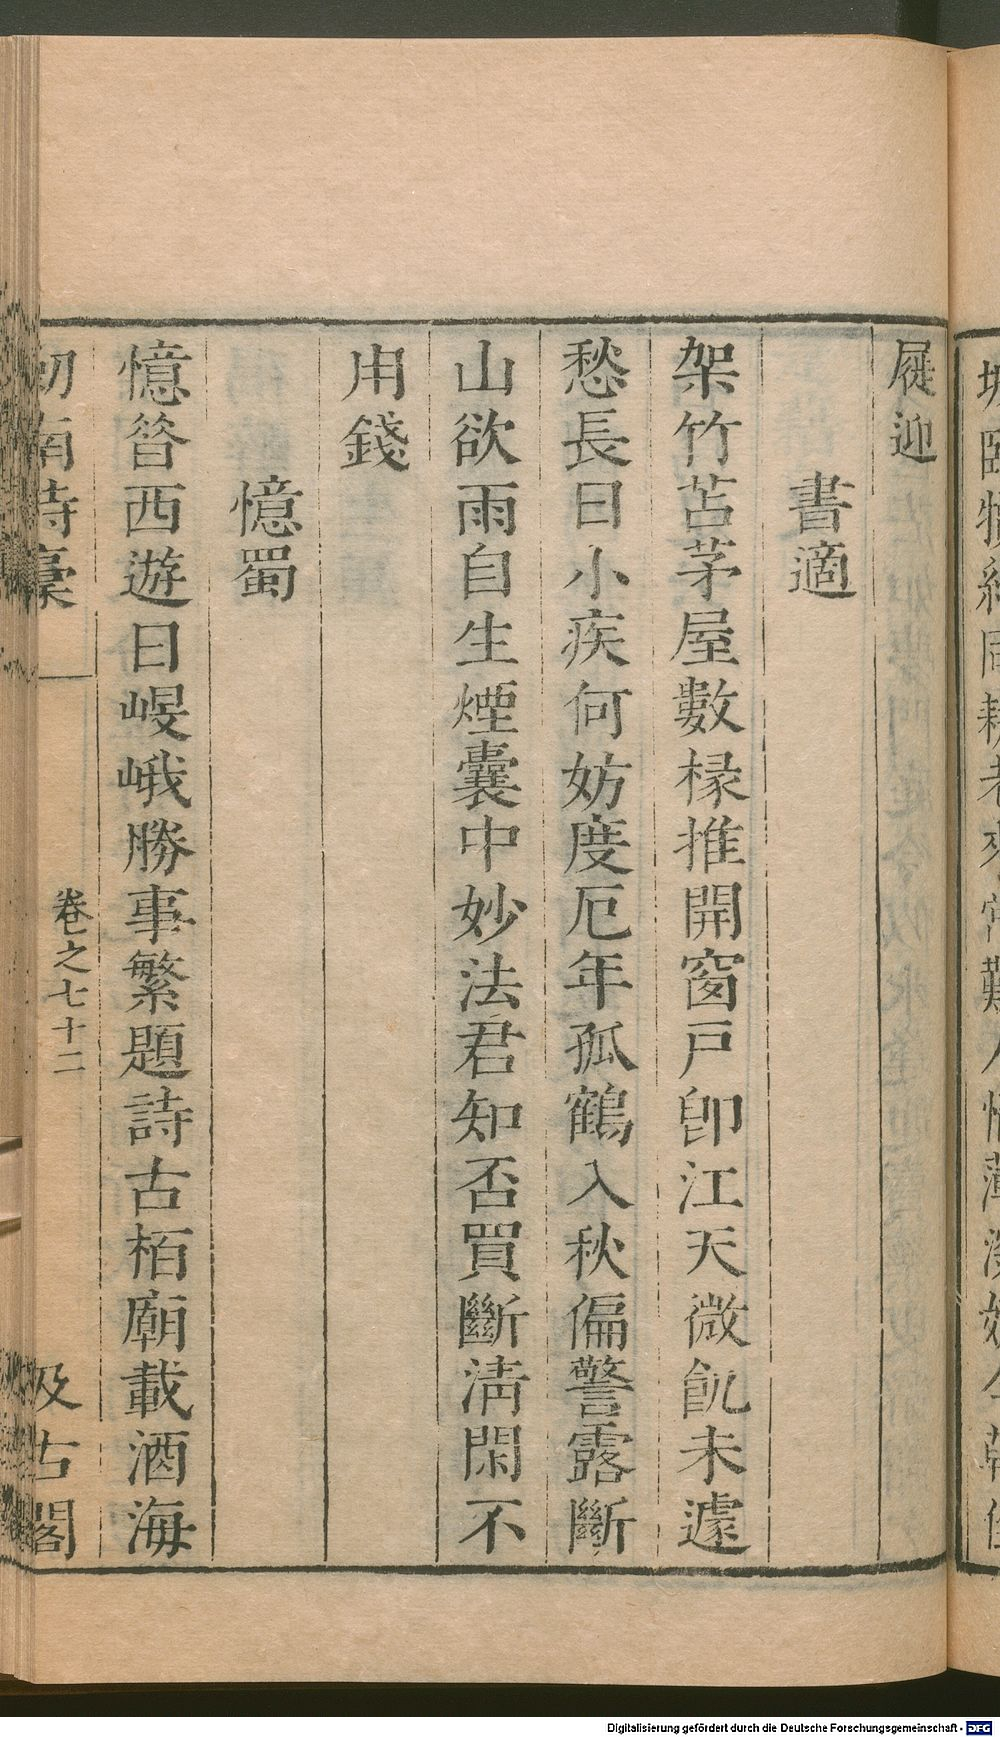 屐迎
書適
架竹苫茅屋數椽推開窗戶卽江天微飢未遽
愁長日小疾何妨度厄年孤鶴入秋偏警露斷
山欲雨自生煙囊中妙法君知否買斷淸閑不
用錢
憶蜀
憶昝西遊日峻峨勝事繁題詩古栢廟載酒海
劒南詩稾
卷之七十二
汲古閣
Digitalisierung gefördert durch die Deutsche Forschungsgemeinschaft - DFG